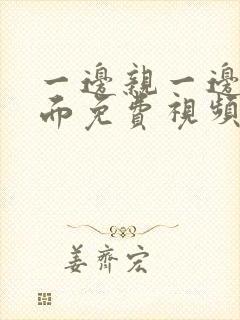 一邊親一邊
而免費視頻
姜齊宏